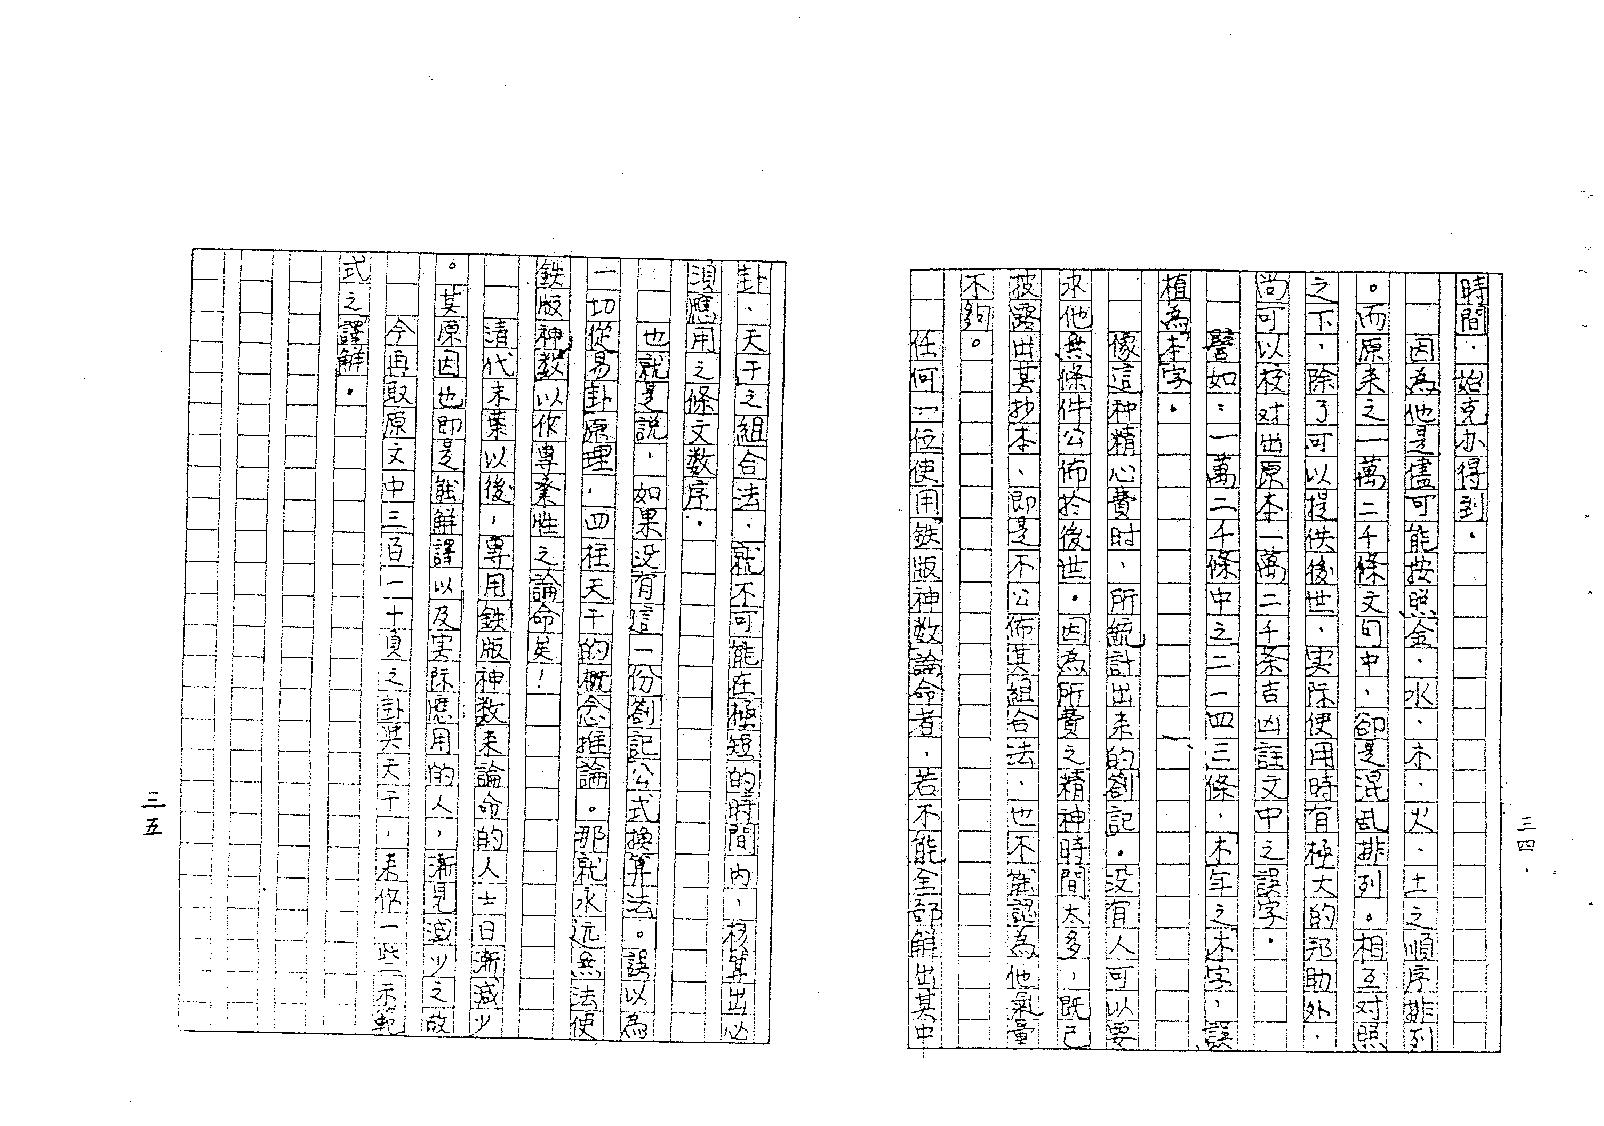 時間，始克办得到。
因為他是儘可能按照金、水、木、火、土之順序排列
。而原来之一萬二千條文句中，卻是混乱排列。相互对照
之下，除了可以提供後世，実际使用時有極大的邦助外，
尚可以校对出原本一萬二千条吉凶註文中之誤字。
譬如：一萬二千條中之二一四三條，木年之木字，誤
植為本字。
像這种精心費时，所統計出来的劄記。没有人可以要
求他無條件公佈於後世。因為所費之精神時間太多，既已
披露出其抄本，即是不公佈其組合法，也不能認為他氣量
不夠。
任何一位使用鉄版神数論命者，若不能全部解出其中
三四
卦、天干之組合法，就不可能在極短的時間内，核算出必
須應用之條文数序。
也就是説，如果没有這一份劄記公式換算法。誤以為
一切從易卦原理，四柱天干的概念推論。那就永远無法使
鉄版神数以作專業性之論命矣！
清代末葉以後，專用鉄版神数来論命的人士日漸減少
。其原因也即是能解譯以及実际應用的人，漸見減少之故
今再取原文中三百二十頁之卦與天干，来作一些示範
式之譯解。
三五